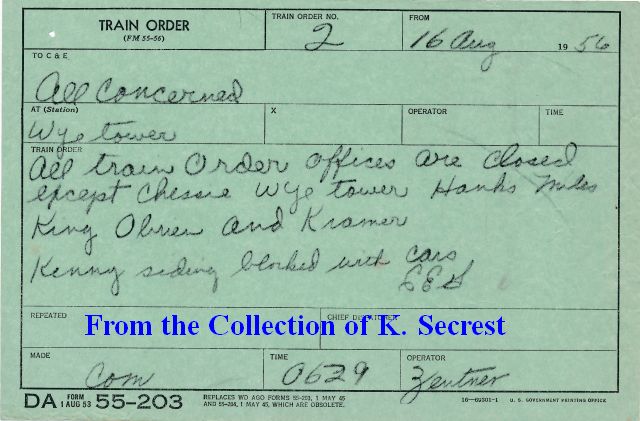 TRAIN ORDER
(FM 55-56)
TRAIN ORDER NO.
2
FROM
16 Aug 1956
TO C & E
All Concerned
AT (Station)
Wye tower
X
OPERATOR
TIME
TRAIN ORDER
All train Order offices are closed
except Chessie Wye tower Hanks Miles
King Obrien and Kramer
Kenny siding blocked with cars
EES
REPEATED
CHIEF DISPATCHER
From the Collection of K. Secrest
MADE
Com
TIME
0629
OPERATOR
Zentner
DA FORM 1 AUG 53 55-203
REPLACES WD AGO FORMS 55-203, 1 MAY 45
AND 55-204, 1 MAY 45, WHICH ARE OBSOLETE.
16—69301-1 U. S. GOVERNMENT PRINTING OFFICE